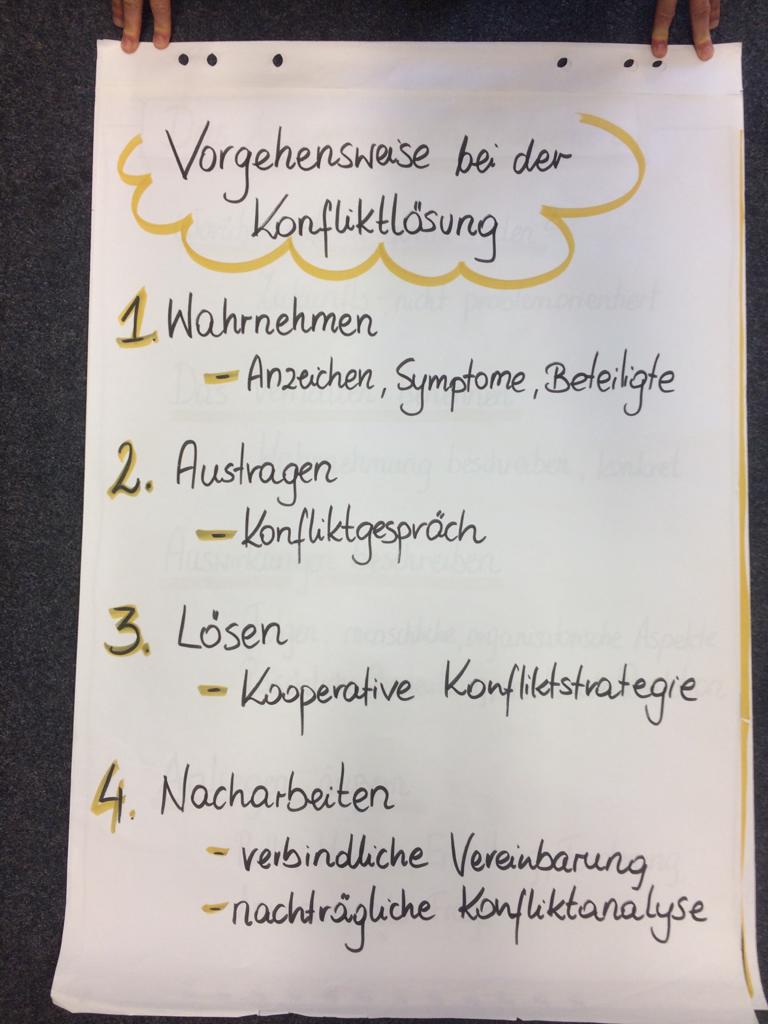 Vorgehensweise bei der
Konfliktlösung
1. Wahrnehmen
- Anzeichen, Symptome, Beteiligte
2. Austragen
- Konfliktgespräch
3. Lösen
- Kooperative Konfliktstrategie
4. Nacharbeiten
- verbindliche Vereinbarung
- nachträgliche Konfliktanalyse